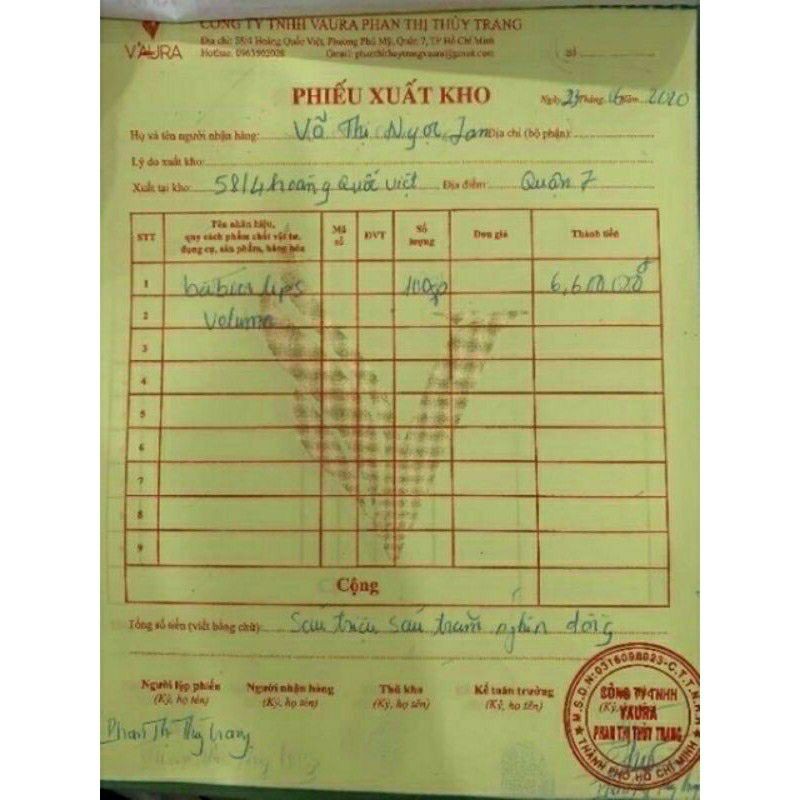 V'AURA
CÔNG TY TNHH VAURA PHAN THỊ THÙY TRANG
Địa chỉ: 58/4 Hoàng Quốc Việt, Phường Phú Mỹ, Quận 7, TP Hồ Chí Minh
Hotline: 0963902028 Gmail: phanthithuytrangvaura@gmail.com
Số
PHIẾU XUẤT KHO
Ngày 23 Tháng 06 Năm 2020
Họ và tên người nhận hàng: Võ Thị Địa chỉ (bộ phận):
Lý do xuất kho:
Xuất tại kho: 58/4 hoàng Quốc việt Địa điểm: Quận 7
STT Tên nhãn hiệu, quy cách phẩm chất vật tư, dụng cụ, sản phẩm, hàng hóa Mã số ĐVT Số lượng Đơn giá Thành tiền
1 lips
2 Volume
3
4
5
6
7
8
9
Cộng
Tổng số tiền (viết bằng chữ): Sáu triệu Sáu trăm nghìn đồng
Người lập phiếu Người nhận hàng Thủ kho Kế toán trưởng
(Ký, họ tên) (Ký, họ tên) (Ký, họ tên) (Ký, họ tên)
Phan Thị Thùy Trang
M.S.D.N: 0316098023-C.T.T.N.H.H
CÔNG TY TNHH
VAURA
PHAN THỊ THÙY TRANG
THÀNH PHỐ HỒ CHÍ MINH